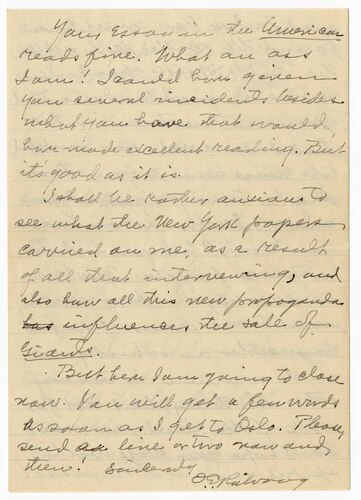 Your Essay in the American
reads fine. What an ass
I am! I could have given
you several incidents besides
what you have that would
have made excellent reading. But
it's good as it is.
I shall be rather anxious to
see what the New York papers
carried on me, as a result
of all that interviewing, and
also how all this new propaganda
has influences the sale of
Giants.
But here I am going to close
now. You will get a few words
as soon as I get to Oslo. Please,
send a line or two now and
then! Sincerely